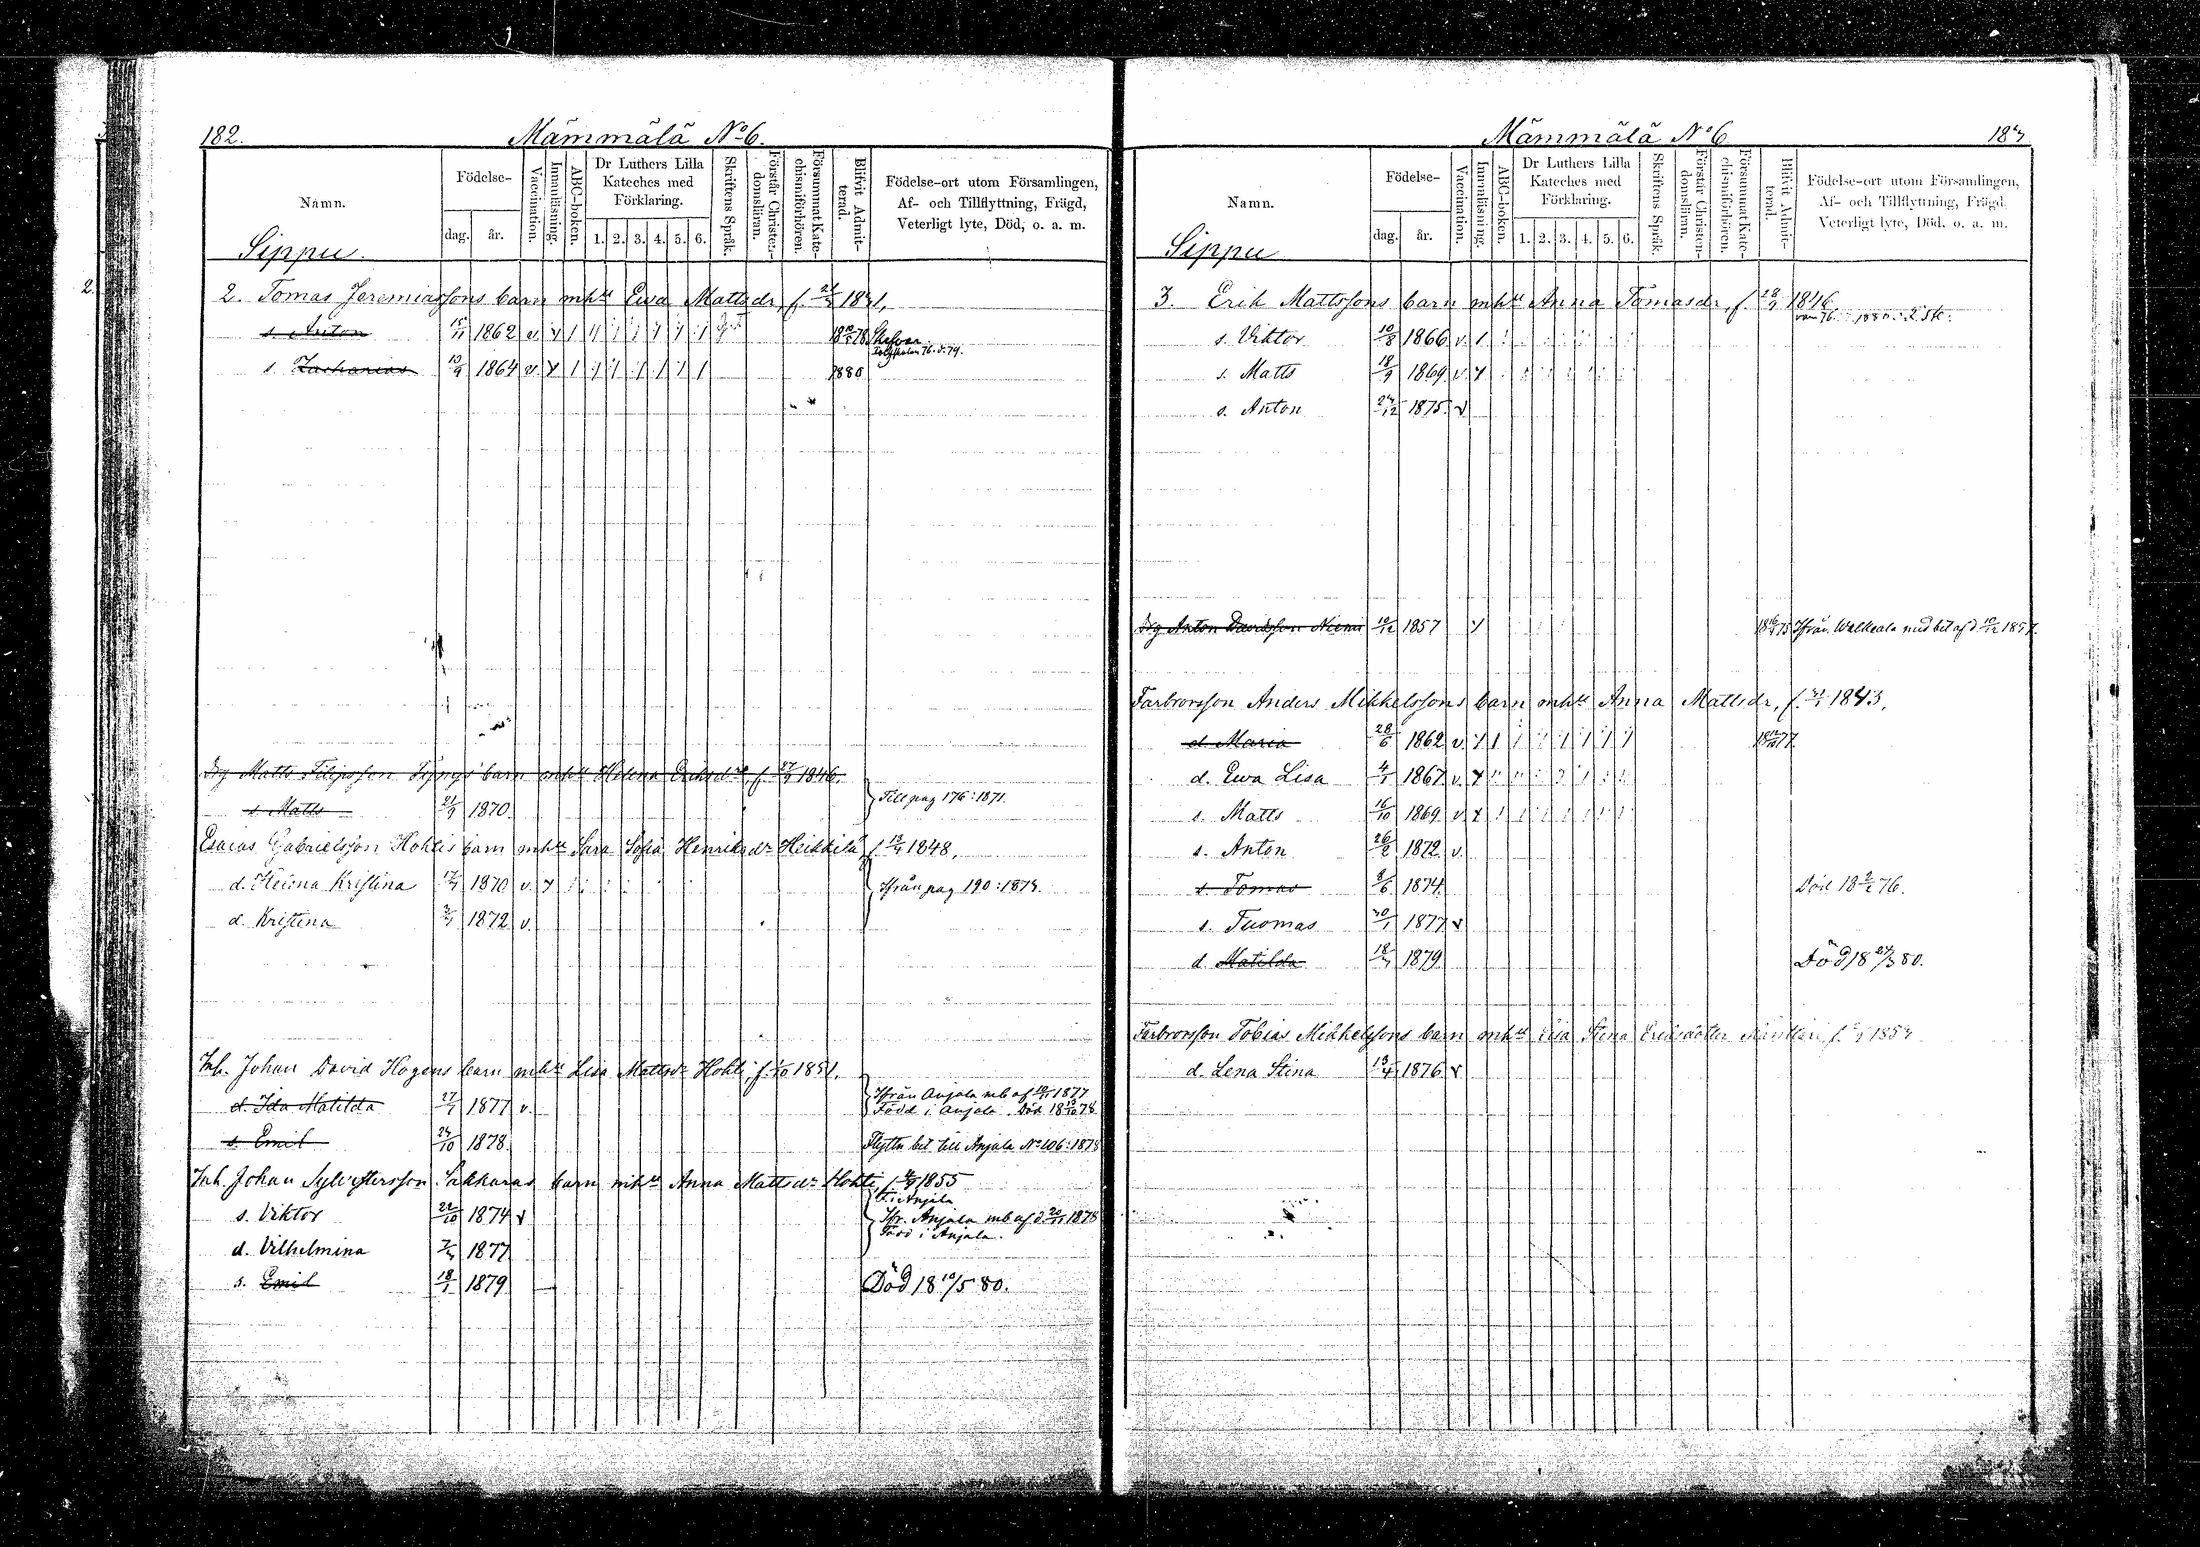 182.
Mämmälä No 6.
Namn.
Födelse-
dag.
år.
Vaccination.
Innanläsning.
ABC-boken.
Dr Luthers Lilla
Kateches med
Förklaring.
1. 2. 3. 4. 5. 6.
Skriftens Språk.
Förstår Christen-
domsläran.
Försummat Kate-
chismiförhören.
Blifvit Admit-
terad.
Födelse-ort utom Församlingen,
Af- och Tillflyttning, Frägd,
Veterligt lyte, Död, o. a. m.
Sippu.
2. Tomas Jeremiassons barn mhu Ewa Mattsdr, f. 1831,
s. Anton 15/11 1862 v.
s. Zacharias 13/9 1864 v. 1880
Matts Filipsson barn mhu Helena Eriksdr f. 1846.
s. Matts 21/9 1870. Till pag 176: 1871.
Esaias Gabrielsson Hohtis barn mhu Sara Sofia Henriksdr Heikkilä, f. 13/4 1848,
d. Helena Kristina 1870 v. Ifrån pag 190: 1873.
d. Kristina 1872 v.
Inh. Johan David Hogens barn mhu Lisa Mattsdr Hohti f. 1851,
d. Ida Matilda 27/7 1877 v. Ifrån Anjala mb af 1877
Född i Anjala. Död 18 78
s. Emil 24/10 1878. Flyttn bet till Anjala No 106: 1878
Inh. Johan Sylvestersson Sakkaras barn mhu Anna Mattsdr Hohti, f. 1855
F. i Anjala
s. Viktor 22/10 1874 v Ifr. Anjala mb af d. 20/11 1878
Född i Anjala.
d. Vilhelmina 1877
s. Emil 18/1 1879 Död 18 10/5 80.
Mämmälä No 6
183
Namn.
Födelse-
dag.
år.
Vaccination.
Innanläsning.
ABC-boken.
Dr Luthers Lilla
Kateches med
Förklaring.
1. 2. 3. 4. 5. 6.
Skriftens Språk.
Förstår Christen-
domsläran.
Försummat Kate-
chismiförhören.
Blifvit Admit-
terad.
Födelse-ort utom Församlingen,
Af- och Tillflyttning, Frägd,
Veterligt lyte, Död, o. a. m.
Sippu
3. Erik Mattssons barn mhu Anna Tomasdr, f. 28/9 1846
s. Viktor 10/8 1866 v.
s. Matts 18/9 1869 v.
s. Anton 24/12 1875 v
Drg Anton Davidsson Niemi 10/12 1857 Ifrån Walkeala med bet af d. 10/12 1857.
Farbrorsson Anders Mikkelssons barn mhu Anna Mattsdr, f. 1843,
d. Maria 28/6 1862 v.
d. Ewa Lisa 4/1 1867 v.
s. Matts 16/10 1869 v.
s. Anton 26/2 1872 v.
s. Tomas 8/6 1874. Död 18 76.
s. Tuomas 30/1 1877 v
d. Matilda 1879 Död 18 24/3 80.
Farbrorsson Tobias Mikkelssons barn mhu Lisa Stina Eriksdotter f. 1853
d. Lena Stina 13/4 1876 v